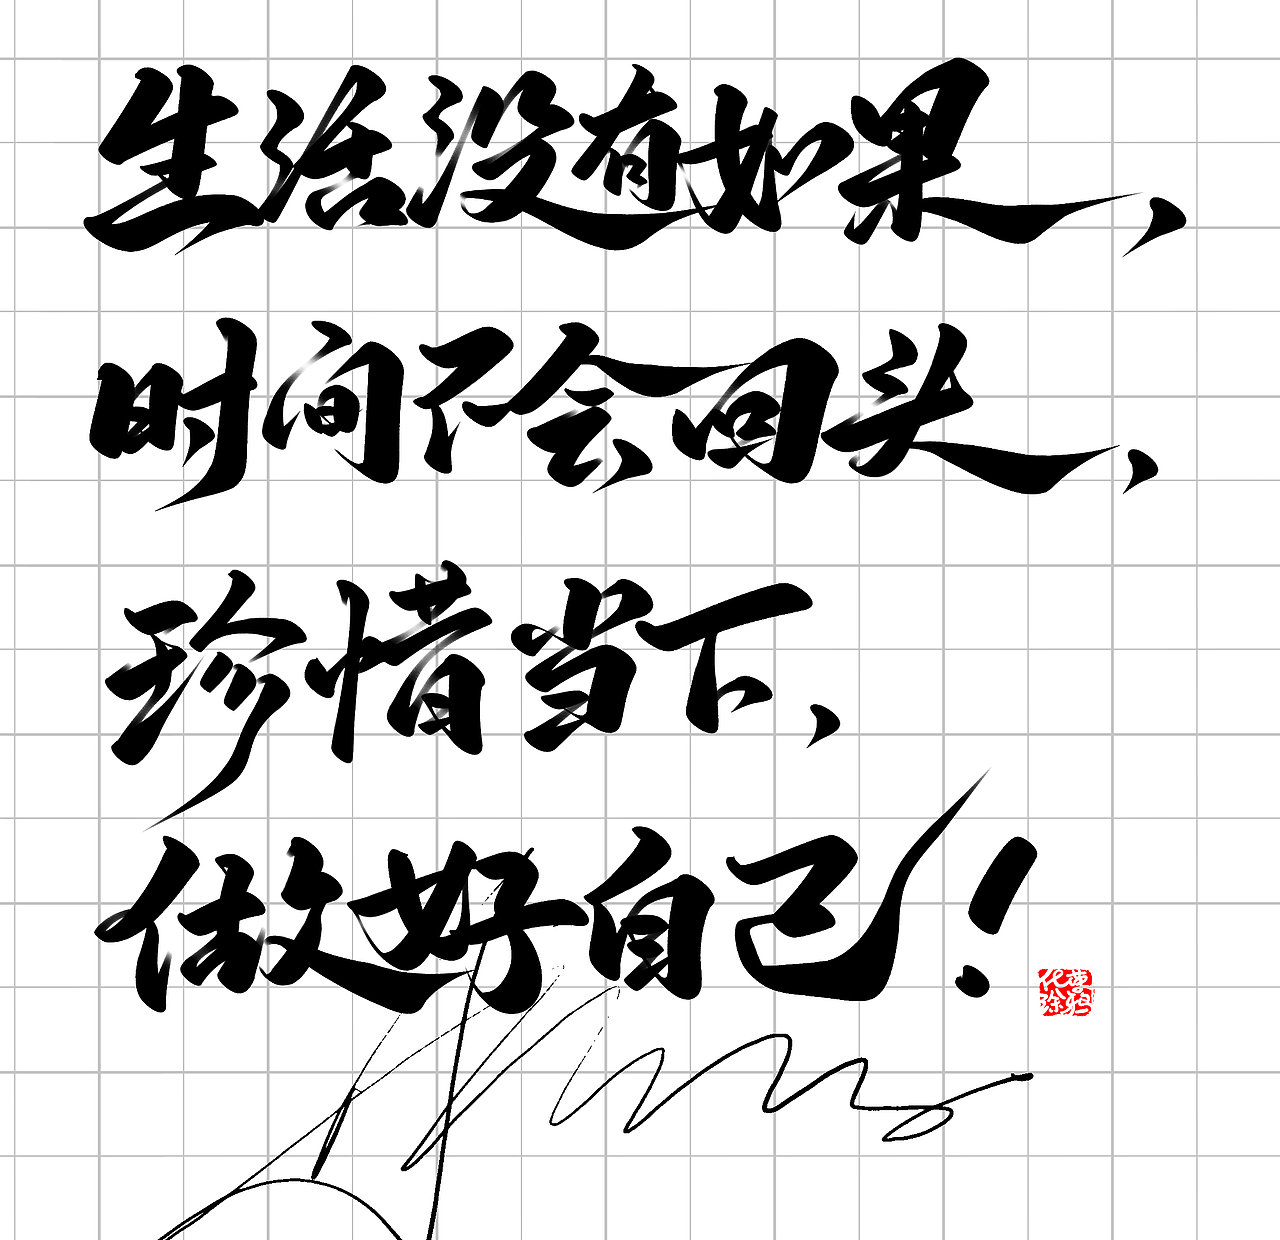 生活没有如果，
时间不会回头，
珍惜当下，
做好自己！